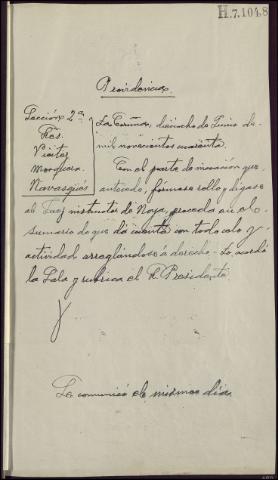 H.7.1048
Providencia
Sección 2ª
Sres.
Víctor
Mosquera
Navasqüés
La Coruña, dieciocho de Junio de
mil novecientos cuarenta.
Con el parte de incoación que
antecede, fórmese rollo y dígase
al Juez instructor de Noya, proceda en el
sumario de que da cuenta con todo celo y
actividad arreglándose á derecho - Lo acordó
la Sala y rubrica el Sr. Presidente
Se comunicó el mismo día